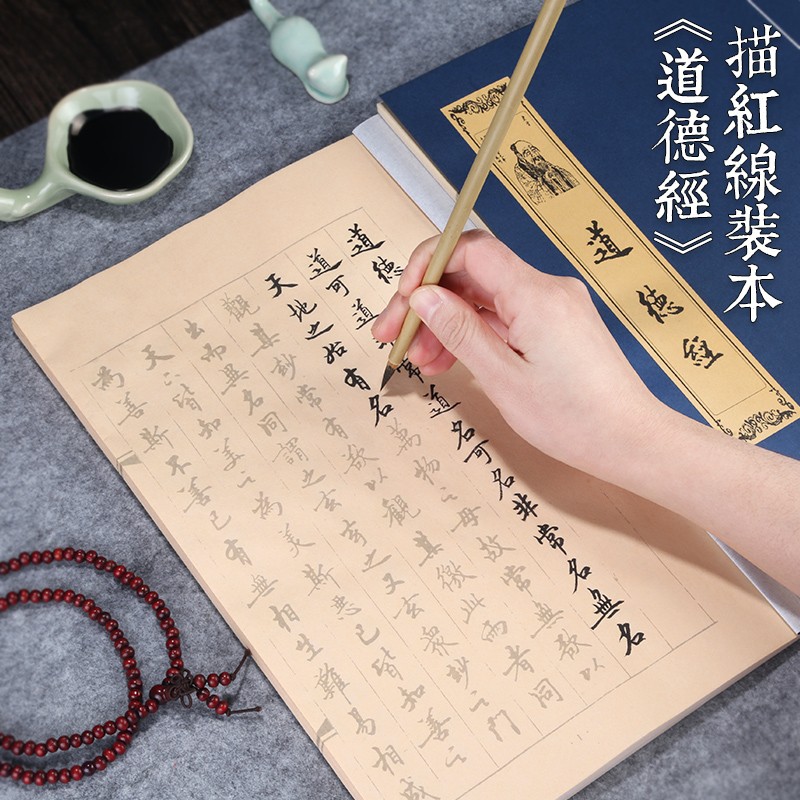 描紅線裝本
《道德經》
道德經
道德
道可道常道名可名非常名無名
天地之始有名萬物之母故常無欲以
觀其妙常有欲以觀其徼此兩者同
出而異名同謂之玄玄之又玄眾妙之門
天下皆知美之為美斯惡已皆知善之
為善斯不善已有無相生難易相成